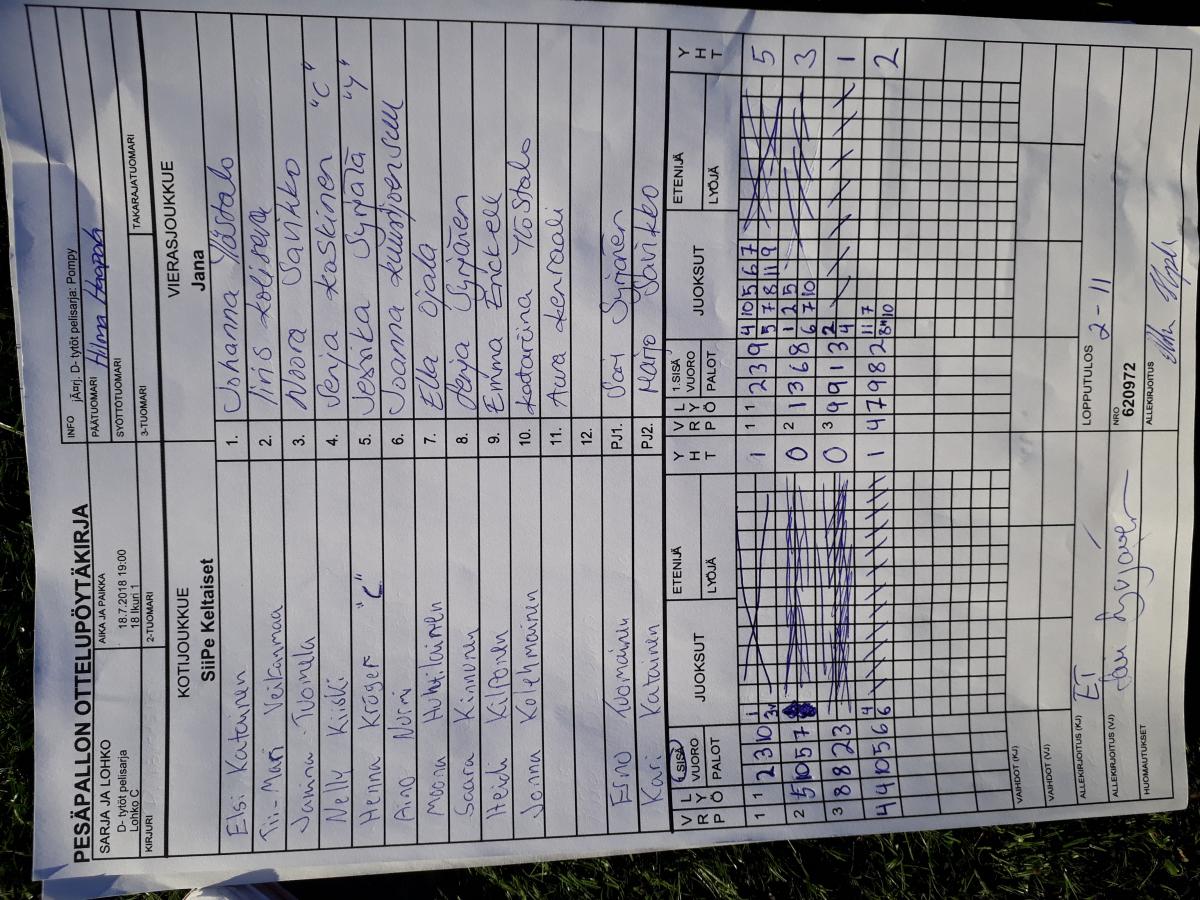 PESÄPALLON OTTELUPÖYTÄKIRJA
INFO jÄ¤rj. D- tytöt pelisarja: Pompy
SARJA JA LOHKO
D- tytöt pelisarja
Lohko C
AIKA JA PAIKKA
18.7.2018 19:00
18 Ikuri 1
PÄÄTUOMARI
Hilma Haapala
SYÖTTÖTUOMARI
KIRJURI
2-TUOMARI
3-TUOMARI
TAKARAJATUOMARI
KOTIJOUKKUE
SiiPe Keltaiset
VIERASJOUKKUE
Jana
Elsi Katainen 1. Johanna Ylöstalo
Tii-Mari Veikanmaa 2. Iiris
Janina Tuomela 3. Noora Savikko
Nelly Kiiski 4. Senja Koskinen "C"
Henna Kröger "C" 5. Jessika Syrjälä "V"
Aino Nurmi 6. Joanna
Moona Huhtilainen 7. Ella Ojala
Saara Kinnunen 8. Senja Syrjänen
Heidi Kilponen 9. Emma Erickell
Jonna Kolehmainen 10. Katariina Ylöstalo
11. Aura
12.
Esno Tuomainen PJ1. Sari Syrjänen
Kari Katainen PJ2. Marko Savikko
V R P L Y Ö SISÄ VUORO PALOT JUOKSUT ETENIJÄ LYÖJÄ Y H T V R P L Y Ö 1.SISÄ VUORO PALOT JUOKSUT ETENIJÄ LYÖJÄ Y H T
1 1 2 3 10 1 3 1 1 1 2 3 9 4 10 5 6 7 5 7 8 11 9 5
2 5 10 5 7 0 2 1 3 6 8 1 2 5 6 7 10 3
3 8 8 2 3 0 3 9 9 1 3 2 4 1
4 4 10 5 6 4 6 1 4 7 9 8 2 11 7 8 10 2
VAIHDOT (KJ)
VAIHDOT (VJ)
ALLEKIRJOITUS (KJ) ET
LOPPUTULOS 2-11
ALLEKIRJOITUS (VJ)
NRO
620972
HUOMAUTUKSET
ALLEKIRJOITUS